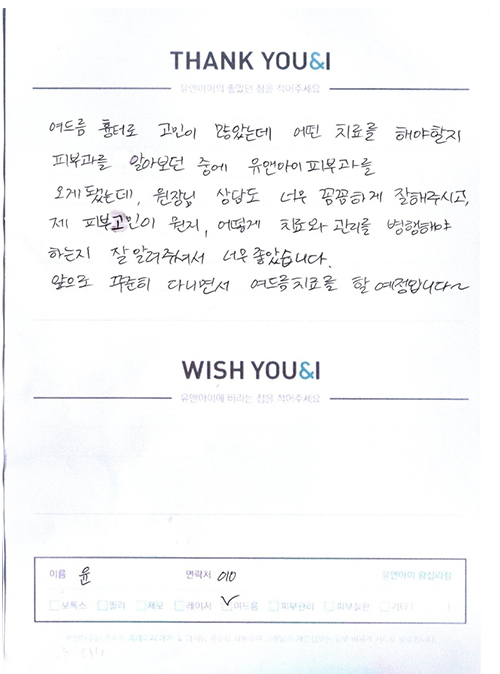 THANK YOU&I
유앤아이의 좋았던 점을 적어주세요
여드름 흉터로 고민이 많았는데 어떤 치료를 해야할지
피부과를 알아보던 중에 유앤아이피부과를
오게 됐는데, 원장님 상담도 너무 꼼꼼하게 잘해주시고,
제 피부고민이 뭔지, 어떻게 치료와 관리를 병행해야
하는지 잘 알려주셔서 너무 좋았습니다.
앞으로 꾸준히 다니면서 여드름치료를 할 예정입니다~
WISH YOU&I
유앤아이에 바라는 점을 적어주세요
이름 윤 연락처 010 유앤아이 왕십리점
보톡스 필러 제모 레이저 여드름 피부관리 피부질환 기타 ( )